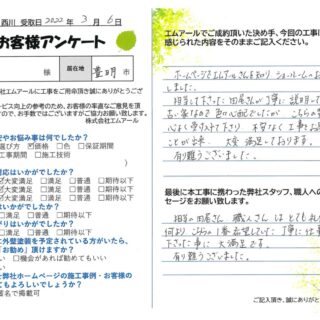 西川 受取日 2022年 3月 6日
お客様アンケート
様 居住地 豊明 市
社エムアールに工事をご用命頂き誠にありがとうござ
ービス向上の参考のため、お客様の率直なご意見を頂
ますので、お手数ではございますがご協力お願い致します。
株式会社エムアール
安やお悩み事は何でしたか？
選び方 ☑価格 □色 □保証期間
工事期間 □施工技術
対応はいかがでしたか？
☑大変満足 □満足 □普通 □期待以下
☑大変満足 □満足 □普通 □期待以下
はいかがでしたか？
□満足 □普通 □期待以下
がりはいかがでしたか？
□満足 □普通 □期待以下
に外壁塗装を予定されている方がいたら、
「お勧め」頂けますか？
い □機会があれば勧めてもいい
い
ら弊社ホームページの施工事例・お客様の
てもよろしいでしょうか？
署名で掲載可
エムアールでご成約頂いた決め手、今回の工事に
感じられた内容をそのままご記入ください。
ホームページでエムアールさんを知り ショールームの
しました。
担当して下さった 田尾さんが丁寧に説明して
心よく受け入れて下さり 不安なく 工事をお
ことが出来、大変 満足しております。
有り難うございました。
最後に本工事に携わった弊社スタッフ、職人への
セージをお願い致します。
担当の田尾さん 職人さんは とても
何より こちらの 1番 希望していた 丁寧に仕事
下さった事に 大満足です。
有り難うございました。
ご記入頂き、誠にありがと